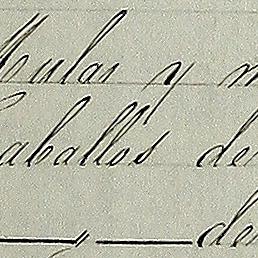 Mulas y m
Caballos de
— y — de